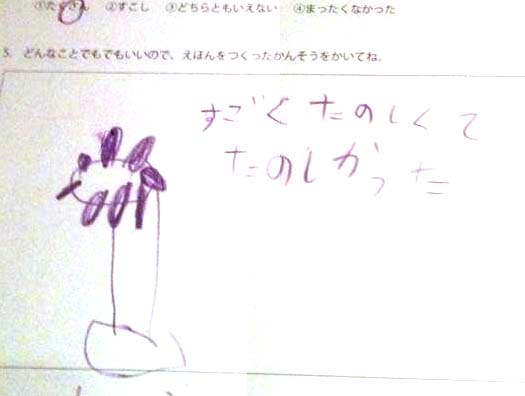 ①たくさん ②すこし ③どちらともいえない ④まったくなかった
5. どんなことでもでもいいので、えほんをつくったかんそうをかいてね。
すごく たのしくて
たのしかった